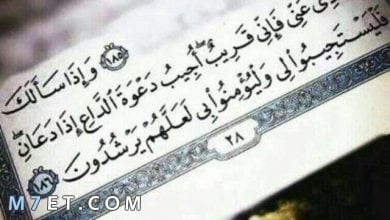 ١٨٥ وَإِذَا سَأَلَكَ
عِبَادِي عَنِّي فَإِنِّي قَرِيبٌ أُجِيبُ دَعْوَةَ الدَّاعِ إِذَا دَعَانِ
فَلْيَسْتَجِيبُوا لِي وَلْيُؤْمِنُوا بِي لَعَلَّهُمْ يَرْشُدُونَ ١٨٦
٢٨
M7ET.COM